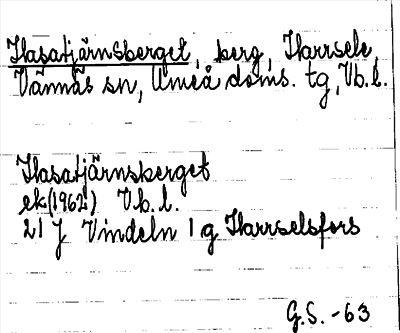 Hasatjärnsberget, berg, Harrsele,
Vännäs sn, Umeå doms. tg, Vb. l.
Hasatjärnsberget
ek(1962) Vb. l.
21 J Vindeln 1 g Harrselsfors
G.S. -63